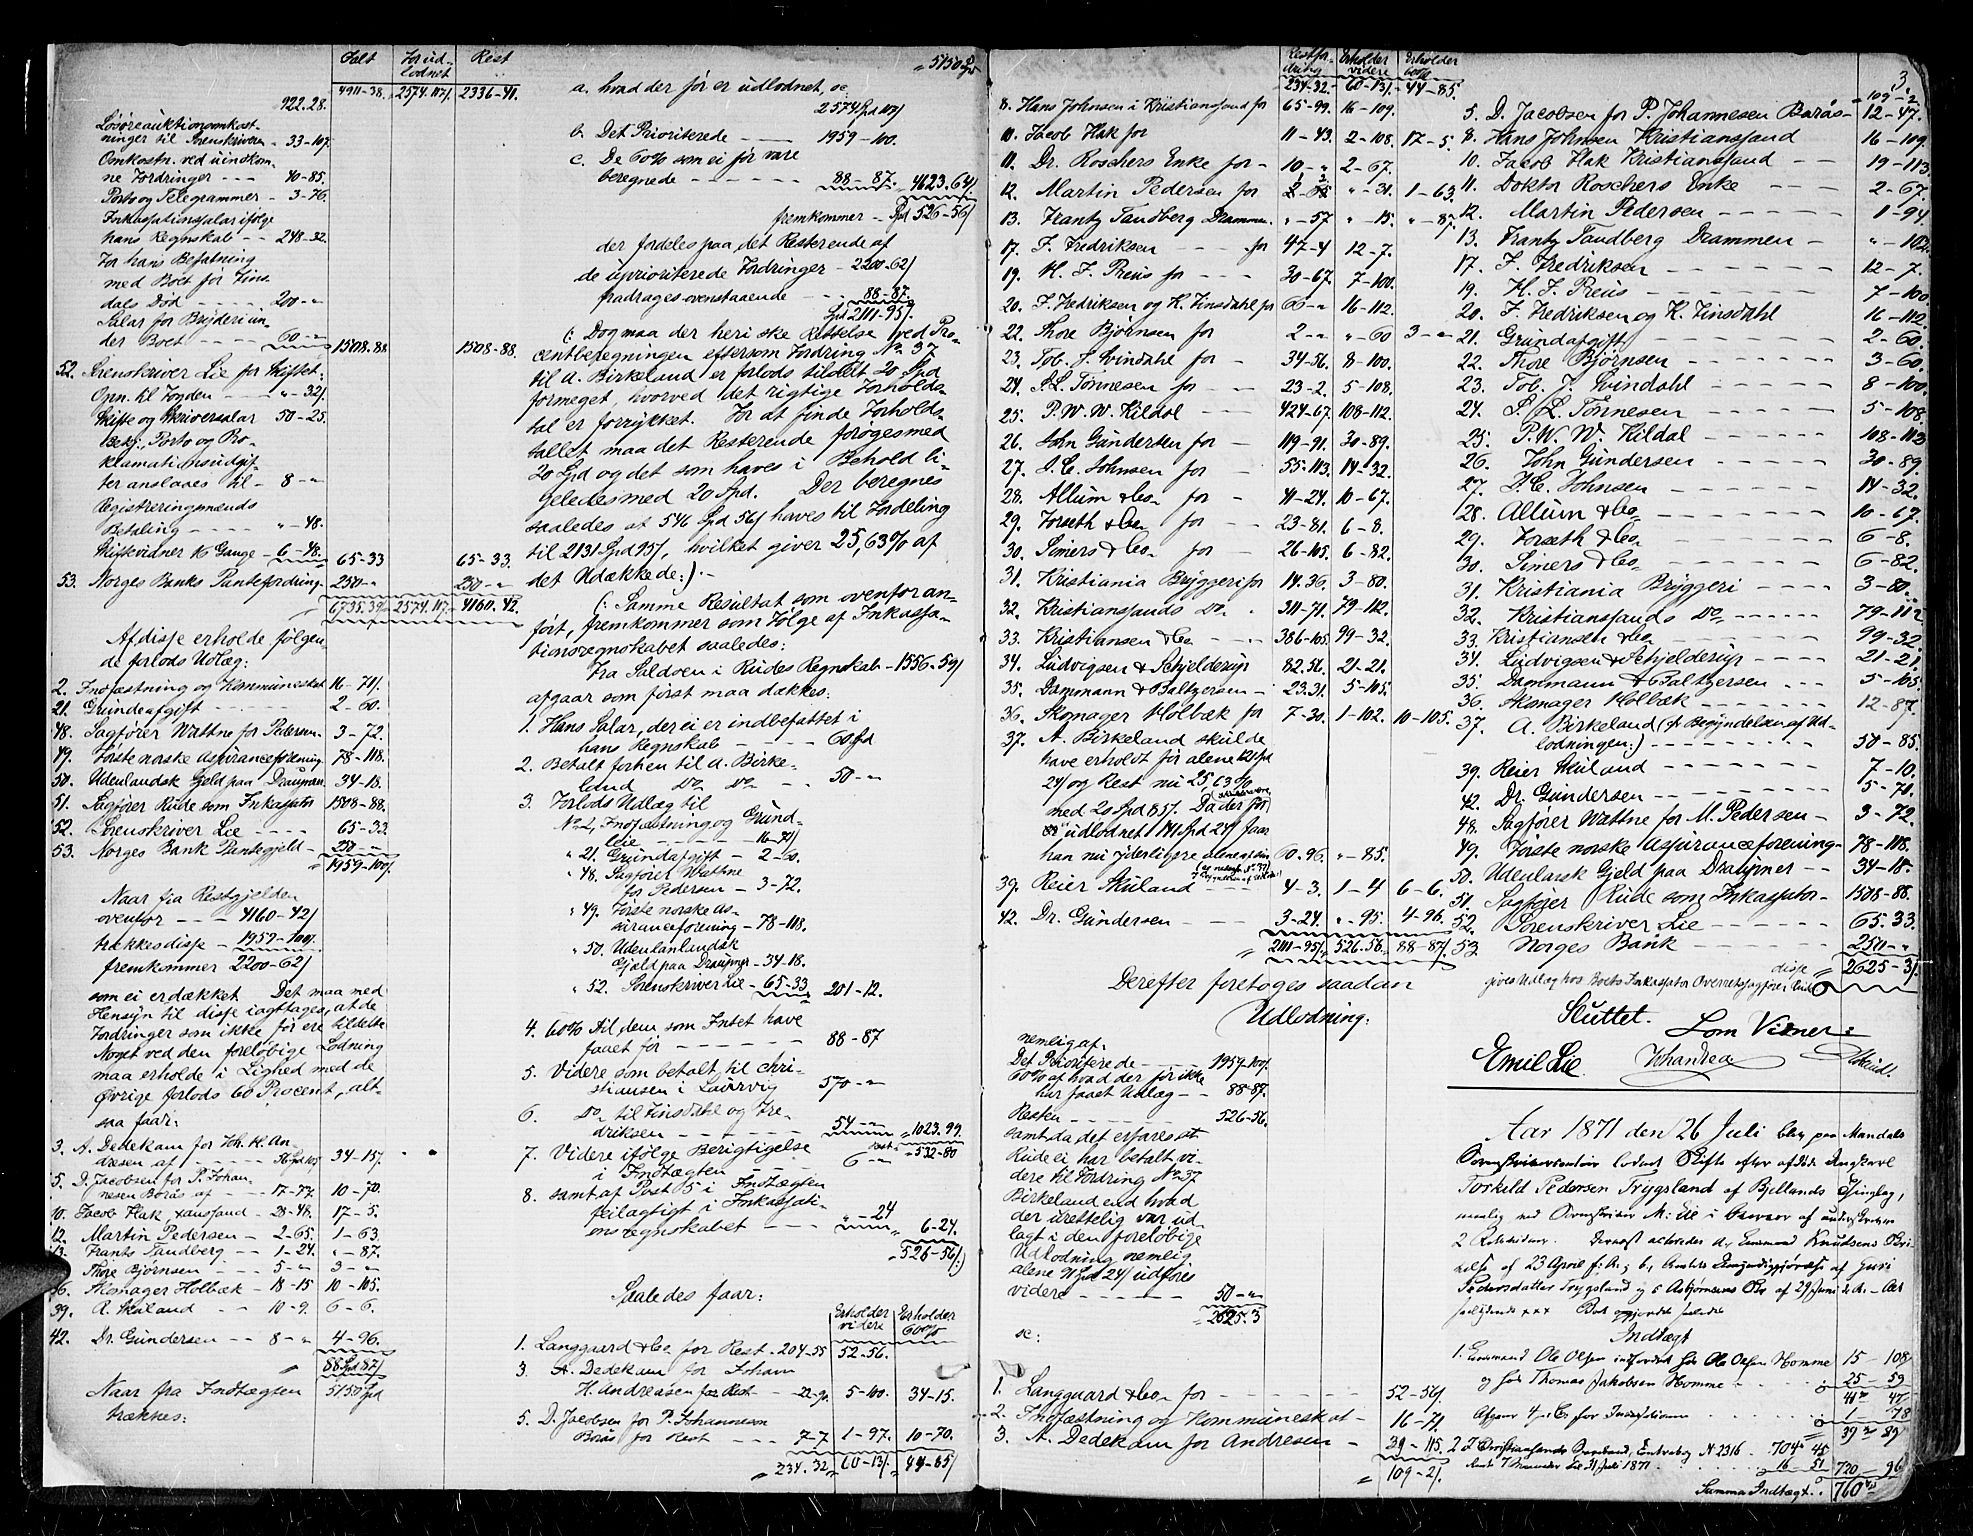 Ialt Forud- Rest
lodnet
4911-38. 2574.117/. 2336-41.
922.28.
Løsøreauktionsomkost-
ninger til Sorenskriveren - 33-107.
Omkostn. ved uindkom-
ne Fordringer - - - 40-85.
Porto og Telegrammer - 3-76.
Inkassationssalar ifølge
hans Regnskab - - 248-32.
For hans Befatning
med Boet før Tins-
dals Død - - - - 200-"
Salar for Bryderi un-
der Boet - - - - 60-" 1508.88. 1508-88.
52. Sorenskriver Lie for Skiftet:
Opn. til Fogden - - - "-32/.
Skifte og Skriversalar 50-25.
Besg., Porto og Pro-
klamationsudgif-
ter anslaaes til - 8-"
Registreringsmænds
Betaling - - - - "-48.
Skiftevidner 16 Gange - 6-48. 65-33 65-33.
53. Norges Banks Pantefordring - 250-" 250-"
6735.39/. 2574.117/. 4160.42.
Af disse erholde følgen-
de forlods Udlæg:
2. Indfæstning og Kommuneskat 16-71/.
21. Grundeafgift - - - 2-60.
48. Sagfører Wattne for Pedersen - 3-72.
49. Første norske Assuranceforening 78-118.
50. Udenlandsk Gjeld paa Draupner - 34-18.
51. Sagfører Rude som Inkassator 1508-88.
52. Sorenskriver Lie - - - 65-33.
53. Norges Bank Pantegjeld - 250-"
1959-100/.
Naar fra Restgjelden
ovenfor - - - 4160-42/
trækkes disse - 1959-100/.
fremkommer 2200-62/
som ei er dækket Det maa med
Hensyn til disse iagttages, at de
Fordringer som ikke før ere tildelte
Noget ved den foreløbige Lodning
maa erholde i Lighed med de
Øvrige forlods 60 Procent, alt-
saa faar:
3. A. Dedekam for Joh. H. An-
dresen af - - - 56 Spd 105 34-15.
5. D. Jacobsen for P. Johan-
nesen Borås af - - - 17-77. 10-70.
10. Jacob Hak, Xansand - 28-48. 17-5.
12. Martin Pedersen - - 2-65. 1-63.
13. Frants Tandberg - - 1-24. "-87.
Thore Bjørnsen - - 5-" 3-"
36. Skomager Holbæk - 18-15 10-105.
39. R. Skuland - - - 10-9. 6-6.
42. Dr. Gundersen - - 8-" 4-96.
88 Spd 87/
Naar fra Indtægten 5150 Spd
trækkes:
"5150 Spd
a. hvad der før er udlodnet, sc:
2574 Spd 117/
b. Det Prioriterede - - - 1959-100.
c. De 60% som ei før vare
beregnede - - - - - 88-87. "4623.64/.
fremkommer - Spd 526-56/
der fordeles paa det Resterende af
de uprioriterede Fordringer - 2200-62/
fradrages ovenstaaende - - 88-87.
Spd 2111-95/.
(: Dog maa der heri ske Rettelse ved Pro-
centberegningen eftersom Fordring No 37
til A. Birkeland er forlods tildelt 20 Spd
formeget, hvorved det rigtige Forholds-
tal er forrykket. For at finde Forholds-
tallet maa det Resterende forøges med
20 Spd og det som haves i Behold li-
geledes med 20 Spd. Der beregnes
saaledes at 546 Spd 56/ haves til Fordeling
til 2131 Spd 95/, hvilket giver 25,63% af
det Udækkede:). -
(: Samme Resultat som ovenfor an-
ført, fremkommer som Følge af Inkassa-
tionsregnskabet saaledes:
Fra Saldoen i Rudes Regnskab - 1556-59/
afgaar som først maa dækkes:
1. Hans Salar, der ei er indbefattet i
hans Regnskab - - - - 60 Spd
2. Betalt forhen til A. Birke-
land Do Do - - - 50-"
3. Forlods Udlæg til
No 2, Indfæstning og Grund-
leie - - - - - 16-71/
" 21. Grundafgift - 2-60.
" 48. Sagfører Wattne
for Pedersen - 3-72.
" 49. Første norske As-
suranceforening - 78-118.
" 50. Udenlanlndsk
Gjeld paa Draupner - 34-18.
" 52. Sorenskriver Lie - 65-33. 201-12.
4. 60% til dem som Intet have
faaet før - - - - - 88-87
5. Videre som betalt til Chri-
stiansen i Laurvig 570-"
6. Do til Tinsdahl og Fre-
driksen - - - - - 54-" "1023.99.
Rest - "532-80
7. Videre ifølge Berigtigelse 6-"
i Indtægten - - -
8. samt af Post 5 i Indtægten
feilagtigt i Inkassati-
onsregnskabet - - - "-24 6-24.
"526-56/:)
Saaledes faar:
Erholder Erholder
videre 60%
1. Langgaard & Co. for Rest - 204-55 52-56.
3. A. Dedekam for Johan
H. Andreasen for Rest - - 22-90. 5-100. 34-15.
5. D. Jacobsen for P. Johannesen
Borås for Rest - - - 7-7. 1-97. 10-70.
"234.32. 60-13/. "44-85/
Restfor- Erholder Erholder
dring videre 60%
234-32- 60-13/. 44-85.
8. Hans Johnsen i Kristianssand for 65-99. 16-109.
10. Jacob Hak for 11-43. 2-108. 17-5.
11. Dr. Roschers Enke for - 10-" 2-67.
12. Martin Pedersen for "-31. 1-63.
13. Frantz Tandberg Drammen. "-57 "-15. "-87.
17. F. Fredriksen - - - for 47-4 12-7.
19. H. F. Preus for - - - 30-67. 7-100.
20. F. Fredriksen og K. Tinsdahl for 66-" 16-112.
22. Thore Bjørnsen for 2-" "-60 3-"
23. Tob. J. Svindahl for - 34-56. 8-100.
24. S.L. Tønnesen for - - 23-2. 5-108.
25. P.W.W. Kildal - - - 424-67. 108-112.
26. John Gundersen for - 119-91. 30-89.
27. S.C. Johnsen for - 55-113. 14-32.
28. Allum & Co. for - 41-24. 10-67.
29. Forseth & Co. for - 23-81. 6-8.
30. Simers & Co. for - 26-105. 6-82.
31. Kristiania Bryggeri for 14.36. 3-80.
32. Kristianssands Do. - 311-71. 79-112.
33. Kristiansen & Co. - - 386-105. 99-32.
34. Ludvigsen & Schjelderup 82.56. 21-21.
35. Dammann & Baltzersen - 23.31. 5-105.
36. Skomager Holbæk for 7-30. 1-102. 10-105.
37. A. Birkeland skulde
have erholdt for alene
24/ og Rest nu 25,63%
med 20 Spd 85/. Da der før
er udlodnet 141 Spd 24/ faar
han nu yderligere alene 60.96. "-85.
39. Reier Skuland - - - 4-3. 1-4 6-6.
42. Dr. Gundersen - - - 3-24. "-95. 4-96.
"2111-95/. 526.56. 88-87/.
Derefter foretoges saadan
Udlodning:
nemlig af:
Det Prioriterede - - - 1959-100/.
60% af hvad der før ikke
har faaet Udlæg - - 88-87.
Resten - - - - - 526-56.
samt da det erfares at
Rude ei har betalt vi-
dere til Fordring No 37
Birkeland end hvad
der urettelig var ud-
lagt i den foreløbige
Udlodning nemlig
alene 91 Spd 24/ udføres
videre - - - - - 50-"
"2625.3
sc:
1. Langgaard & Co. for - - - - - 52-56/.
2. Indfæstning og Kommuneskat - 16-71.
3. A. Dedekam for Andresen - 39-115.
" 109-2/.
3.
"109-2
5. D. Jacobsen for P. Johannesen Borås - 12-47.
8. Hans Johnsen Kristianssand 16-109.
10. Jacob Hak Kristianssand - - 19-113.
11. Doktor Roschers Enke - - - 2-67.
12. Martin Pedersen - - - - 1-94.
13. Frantz Tandberg Drammen - "-102.
17. F. Fredriksen - - - - - 12-7.
19. H. F. Preus - - - - - 7-100.
20. F. Fredriksen og K. Tinsdahl 16-112.
21. Grundafgift - - - - - 2-60.
22. Thore Bjørnsen - - - - 3-60.
23. Tob. J. Svindahl - - - - 8-100.
24. S.L. Tønnesen - - - - - 5-108.
25. P.W.W. Kildal - - - - - 108-113
26. John Gundersen - - - - 30-89.
27. S.C. Johnsen - - - - - 14-32.
28. Allum & Co. - - - - - 10-67.
29. Forseth & Co. - - - - - 6-8.
30. Simers & Co. - - - - - 6-82.
31. Kristiania Bryggeri - - - 3-80.
32. Kristianssands Do - - - - 79-112
33. Kristiansen & Co. - - - - 99-32.
34. Ludvigsen & Schjelderup - - - 21-21.
35. Dammann & Baltzersen - - 5-105.
36. Skomager Holbæk - - - - 12-87.
37. A. Birkeland (: Begyndelsen af Ud-
lodningen:) - - - - - 50-85.
39. Reier Skuland - - - - 7-10.
42. Dr. Gundersen - - - - 5-71.
48. Sagfører Wattne for M. Pedersen - 3-72.
49. Første norske Assuranceforening - 78-118.
50. Udenlansk Gjeld paa Draupner - - 34-18.
51. Sagfører Rude som Inkassator - 1508-88.
52. Sorenskriver Lie - - - - 65.33.
53 Norges Bank - - - - 250-"
disse "2625-3/.
gives Udlæg hos Boets Inkassator Overretssagfører Rude
Sluttet. Som Vidner:
Emil Lie.
Aar 1871 den 26 Juli blev paa Mandals
Sorenskrivercontoir holdt Skifte efter afdøde Ungkarl
Torkild Pedersen Trygsland af Bjellands Thinglag,
nemlig ved Sorenskriver M: Lie i Overvær af underskrevne
2 Retsvidner. Dernæst anførtes A, Lensmand Knudsens Skri-
velse af 23 April f: A:, b, Amtets Kundgjørelse af
Pedersdatter Trygsland og Asbjørnsens Br. af 29 Juni d. A. -
saalydende xxx Boet opgjordes saaledes
Indtægt
1. Lensmand Ole Olsen indfordret hos Ole Olsen Homme 15-108
og hos Thomas Jakobsen Homme - 25-59
41-47
Afgaar 4 pC. for Incassation 1-78
39-89
2 I Christianssands Sparebank, Contrabog N 2316. 704-45
Rente 7 Maaneder til 31 Juli 1871 16-51 720-96
Summa Indtægt . . 760